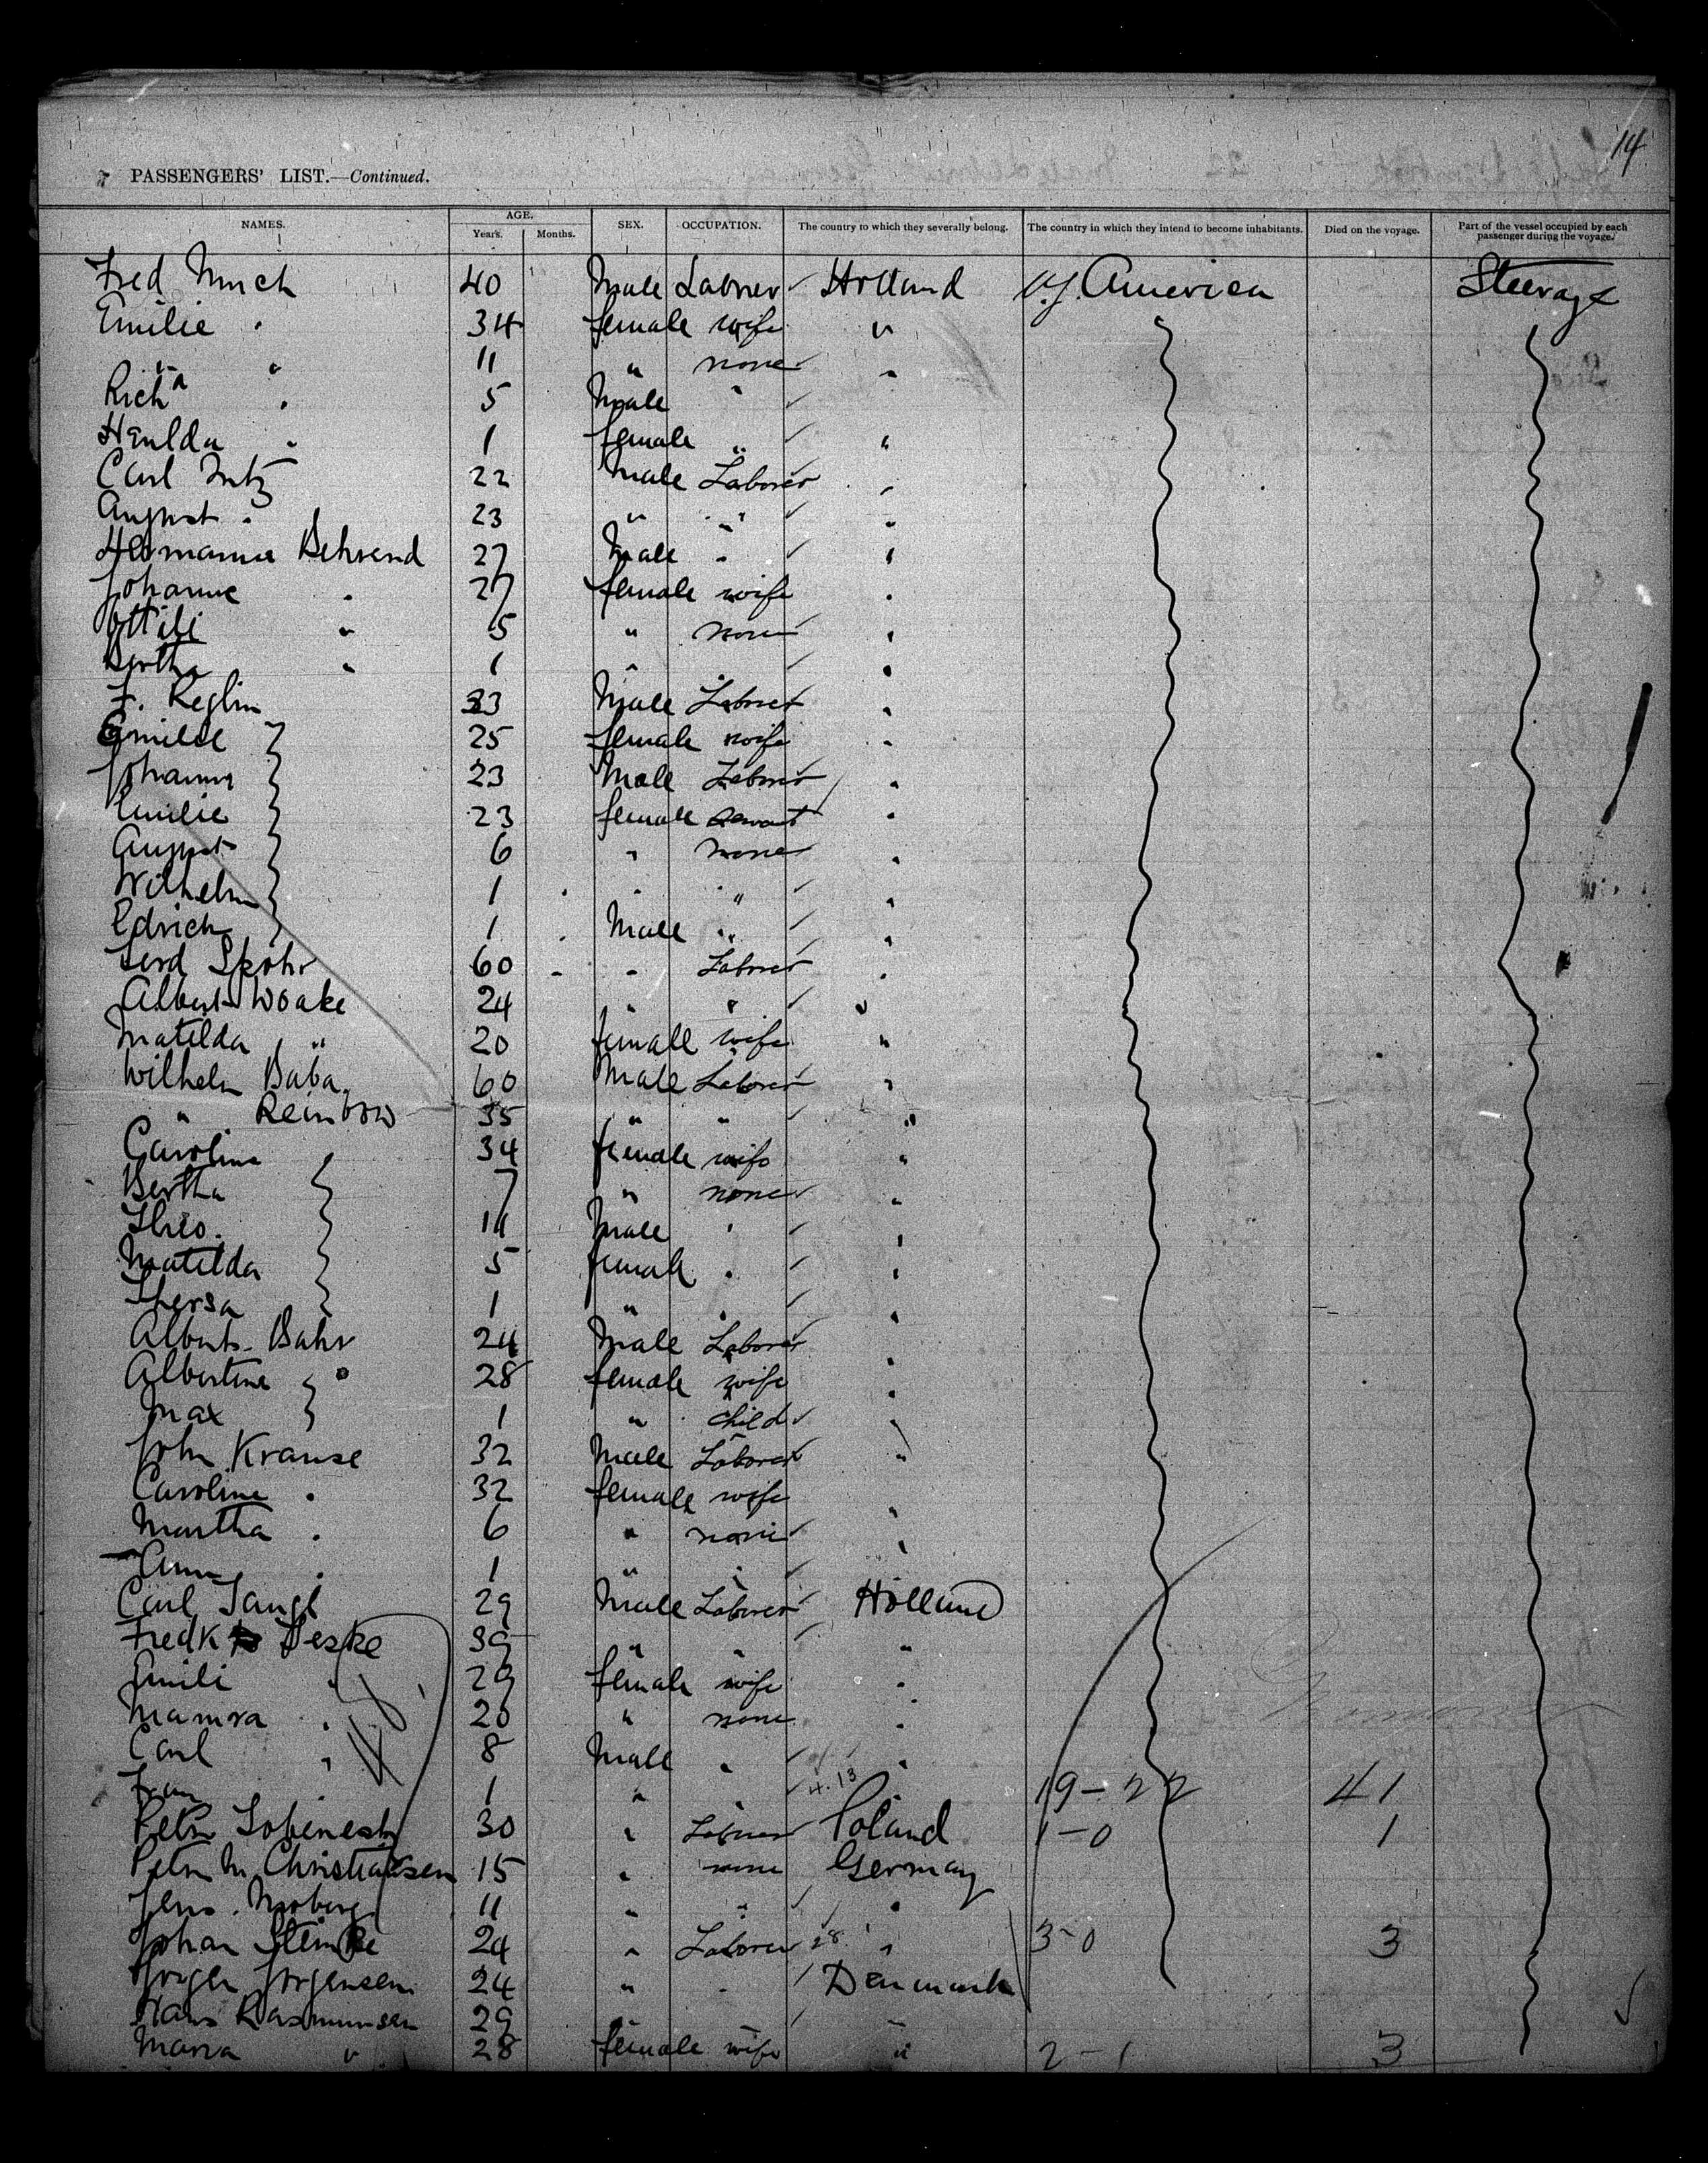 14
PASSENGERS' LIST.—Continued.
NAMES. AGE. Years. Months. SEX. OCCUPATION. The country to which they severally belong. The country in which they intend to become inhabitants. Died on the voyage. Part of the vessel occupied by each passenger during the voyage.
Fred 40 Male Laborer Holland America Steerage
Emilie " 34 female wife "
" " 11 " none "
Rich'd " 5 Male "
Hulda " 1 female " "
Carl 22 Male Laborer "
August " 23 " " "
Behrend 27 Male " "
Johanne " 27 female wife "
Ottili " 5 " none "
Bertha " 1 " "
F. Reglin 33 Male Laborer "
Emilie 25 female wife "
Johanns 23 Male Laborer "
Emilie 23 female Servant "
August 6 " none "
Wilhelm 1 " " "
Edrich 1 Male " "
Ferd Spohr 60 " Laborer "
Albert Woake 24 " " "
Matilda " 20 female wife "
Wilhelm Baba 60 Male Laborer "
" Reinbow 35 " " "
Caroline 34 female wife "
Bertha 7 " none "
Theo. 11 Male " "
Matilda 5 female " "
Thersa 1 " " "
Albert Bahr 24 Male Laborer "
Albertine " 28 female wife "
Max 1 " child "
John Krause 32 Male Laborer "
Caroline " 32 female wife "
Martha " 6 " none "
Ann " 1 " "
Carl 29 Male Laborer Holland
Fredk Deske 39 " " "
Emili " 29 female wife "
" 20 " none "
Carl " 8 Male " "
1 " 4.13 19-22 41
Peter 30 " Laborer Poland 1-0 1
Peter M. Christiansen 15 " none Germany
Jens 11 " " "
Johan 24 " Laborer " 3-0 3
Jorgen Jorgensen 24 " " Denmark
Hans Rasmussen 29 " " "
Maria " 28 female wife " 2-1 3